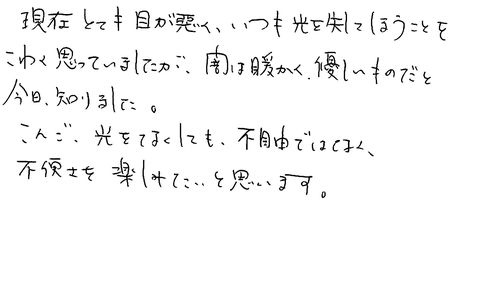 現在とても目が悪く、いつも光を失してしまうことを
こわく思っていましたが、闇は暖かく、優しいものだと
今日、知りました。
こんご、光をなくしても、不自由ではなく、
不便さを楽しみたいと思います。